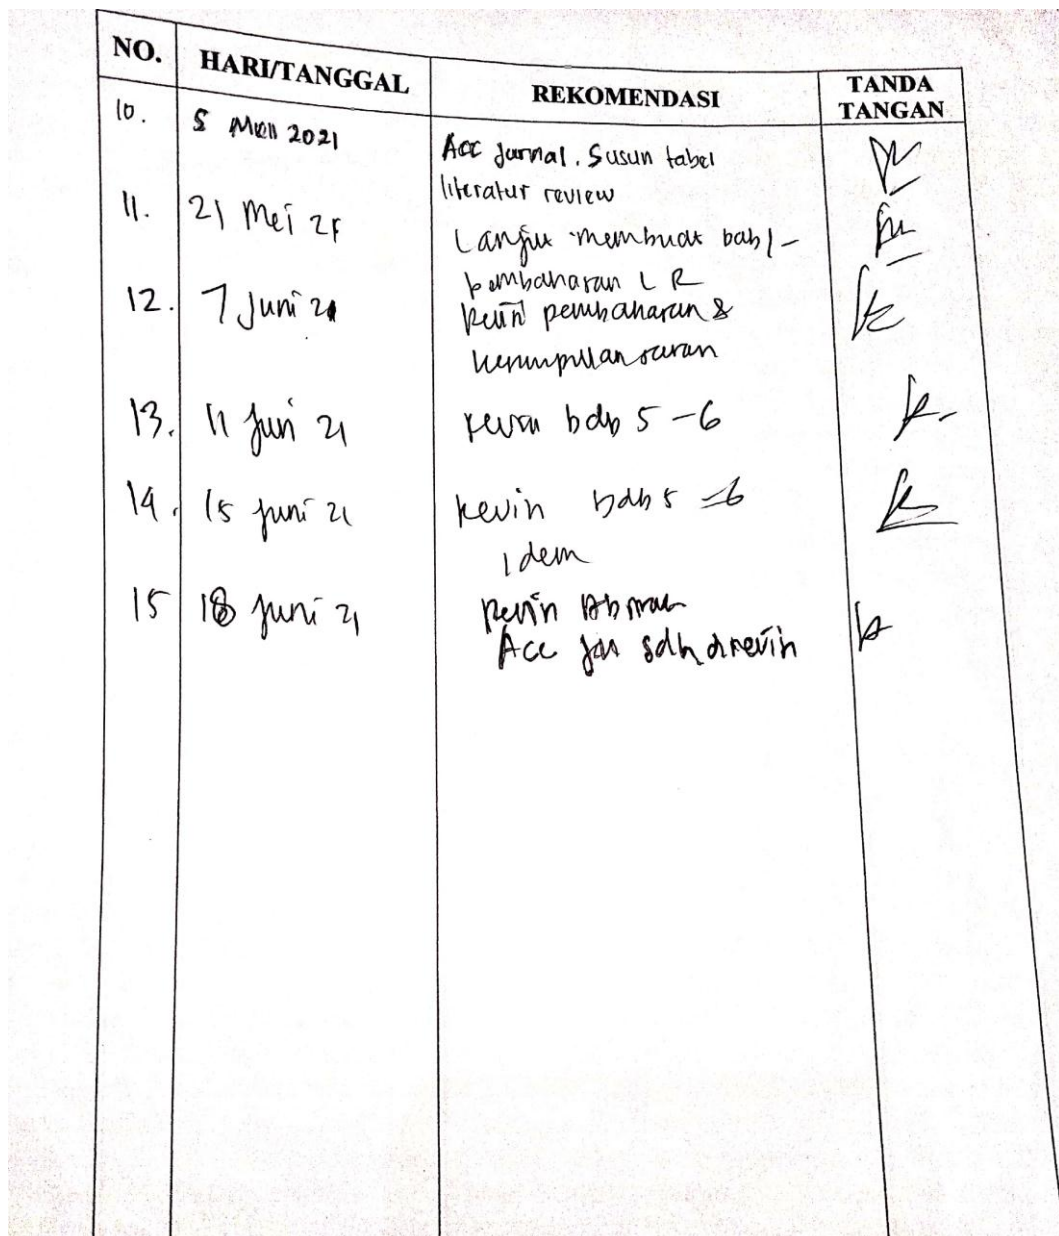 NO. HARI/TANGGAL REKOMENDASI TANDA TANGAN
10. 5 Mei 2021 Acc Jurnal. Susun tabel
literatur review
11. 21 Mei 21 Lanjut membuat bab 1 -
pembahasan L R
12. 7 Juni 21 pembahasan &
kesimpulan saran
13. 11 Juni 21 bab 5 - 6
14. 15 Juni 21 Revisi bab 5 - 6
idem
15 18 Juni 21 Revisi Abstrak
Acc sdh direvisi